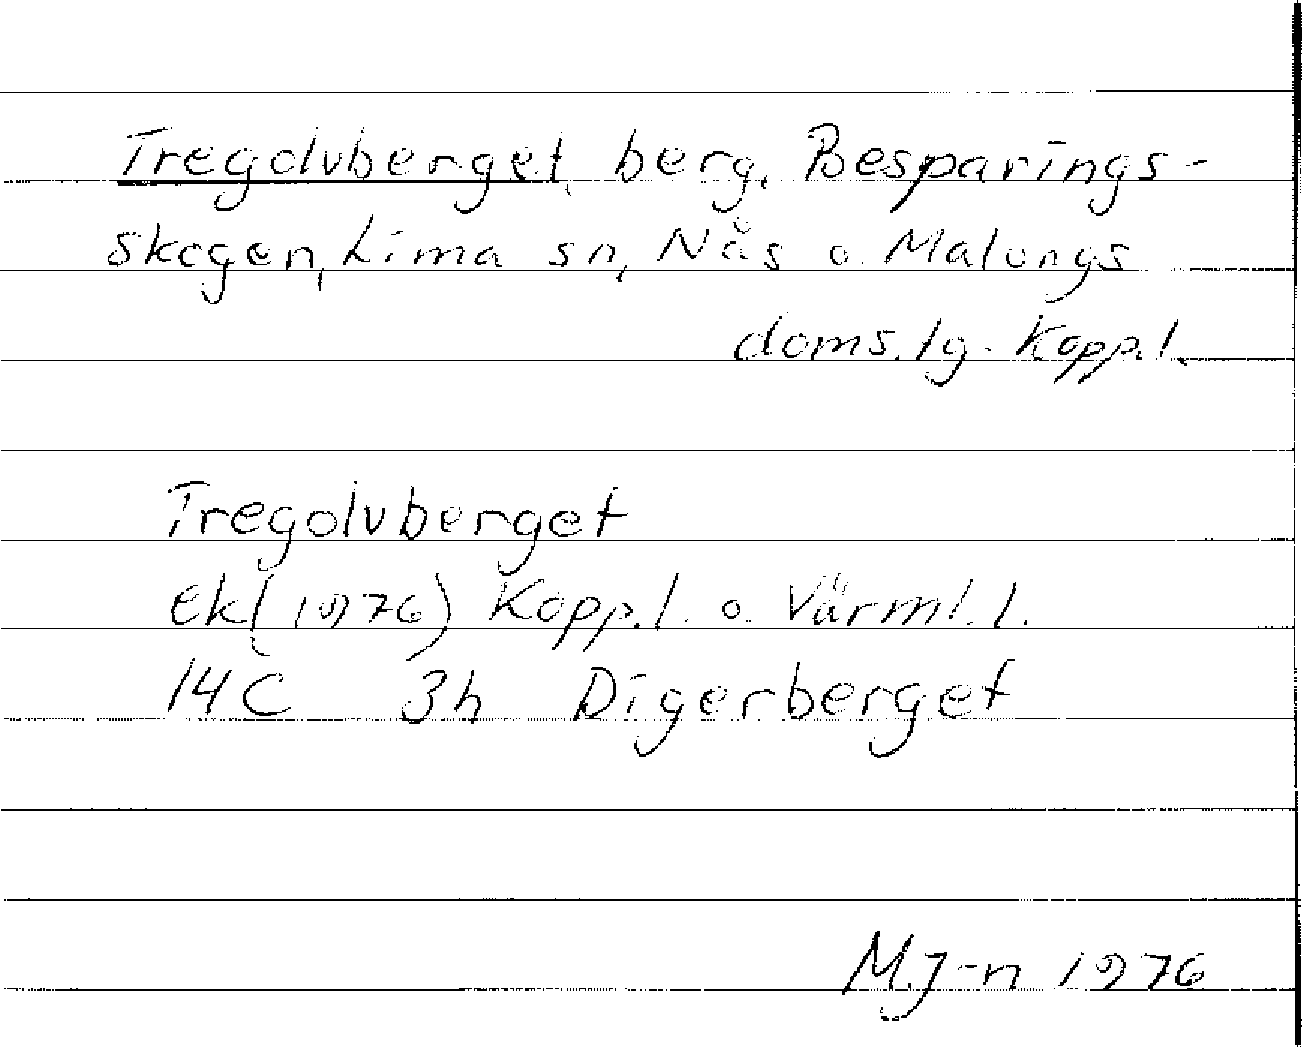 Tregolvberget, berg, Besparings-
skogen, Lima sn, Nås o. Malungs
doms.lg. Kopp.l.
Tregolvberget
ek(1976) Kopp.l. o. Värml.l.
14C 3h Digerberget
M.J-n 1976